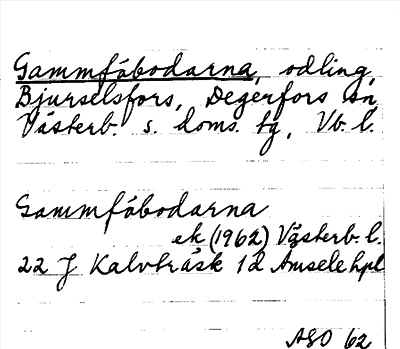 Gammfäbodarna, odling,
Bjurselsfors, Degerfors sn,
Västerb. s. doms. tg, Vb. l.
Gammfäbodarna
ek (1962) Västerb. l.
22 J Kalvträsk 1d Amsele hpl
ASO 62